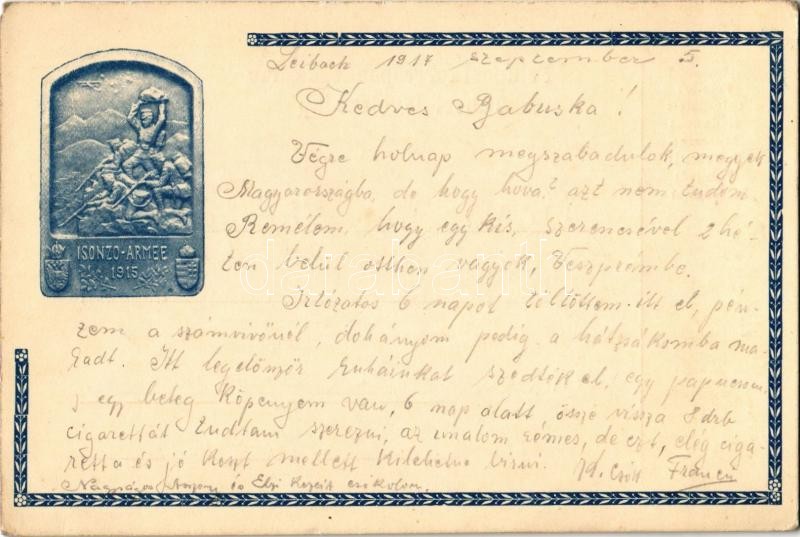 Leibach 1917 szeptember 5.
Kedves Babuska!
Végre holnap megszabadulok, megyek
Magyarországba, de hogy hova? azt nem tudom
Remélem, hogy egy kis, szerencsével 2 hé-
ten belül otthon vagyok, Veszprémbe.
Irtózatos 6 napot töltöttem itt el, pén-
zem a számvivőnél, dohányom pedig a hátzsákomba ma-
radt. Itt legelőször ruháinkat szedték el, egy papucsom
s egy beteg köpenyem van, 6 nap alatt össze vissza 8 drb
cigarettát tudtam szerezni, az unalom rémes, de ezt, elég ciga-
retta és jó koszt mellett kilehetne birni. Csók Franci
Nagyságos Asszony és Elzi kezeit csókolom.
ISONZO-ARMEE
1915
darabanth